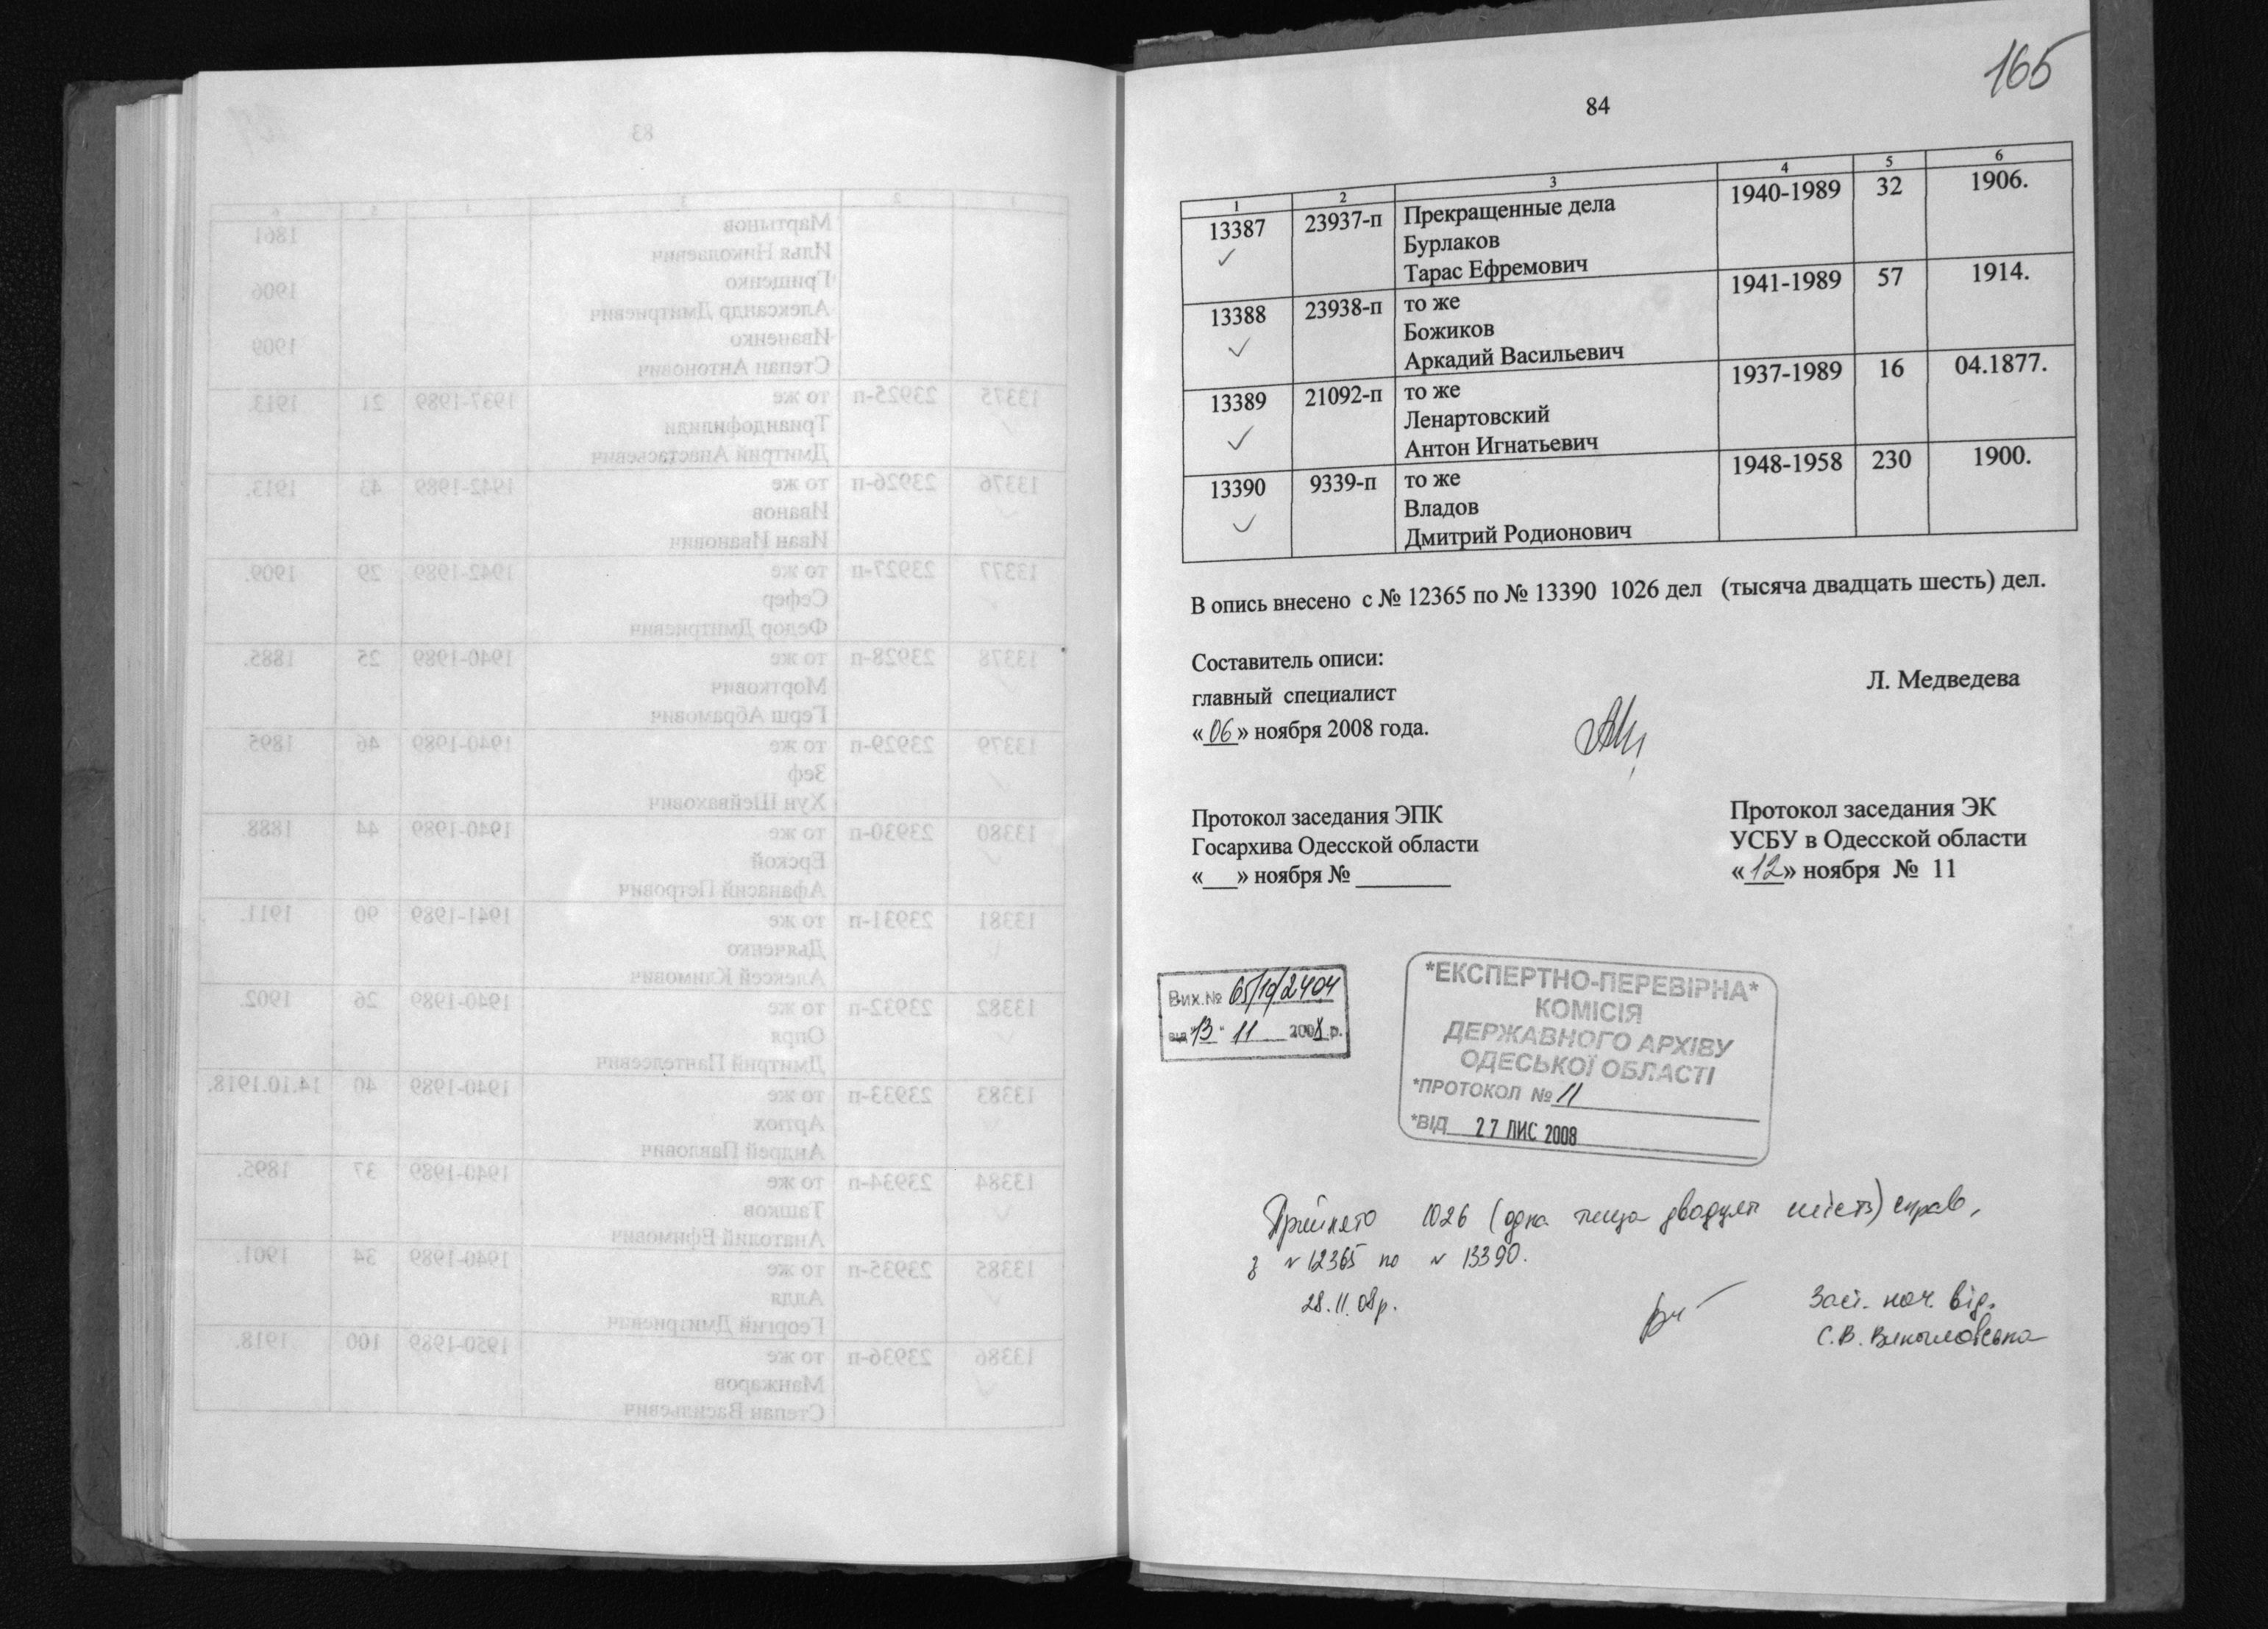 165
84
1 2 3 4 5 6
13387 23937-п Прекращенные дела 1940-1989 32 1906.
Бурлаков
Тарас Ефремович
13388 23938-п то же 1941-1989 57 1914.
Божиков
Аркадий Васильевич
13389 21092-п то же 1937-1989 16 04.1877.
Ленартовский
Антон Игнатьевич
13390 9339-п то же 1948-1958 230 1900.
Владов
Дмитрий Родионович
В опись внесено с № 12365 по № 13390 1026 дел (тысяча двадцать шесть) дел.
Составитель описи:
главный специалист Л. Медведева
«06» ноября 2008 года.
Протокол заседания ЭПК
Госархива Одесской области
«___» ноября № ________
Протокол заседания ЭК
УСБУ в Одесской области
«12» ноября № 11
Вих.№ 65/19/2404
від "13" 11 2008 р.
*ЕКСПЕРТНО-ПЕРЕВІРНА*
КОМІСІЯ
ДЕРЖАВНОГО АРХІВУ
ОДЕСЬКОЇ ОБЛАСТІ
*ПРОТОКОЛ № 11
*ВІД 27 ЛИС 2008
Прийнято 1026 (одна тисяча двадцять шість) справ,
з № 12365 по № 13390.
28.11.08р.
Заст. нач. від.
С.В.
83
1 2 3 4 5 6
Мартынов 1861
Илья Николаевич
Грищенко 1906
Александр Дмитриевич
Иваненко 1909
Степан Антонович
13375 23925-п то же 1937-1989 21 1913.
Триандофилиди
Дмитрий Анастасьевич
13376 23926-п то же 1942-1989 43 1913.
Иванов
Иван Иванович
13377 23927-п то же 1942-1989 29 1909.
Сефер
Федор Дмитриевич
13378 23928-п то же 1940-1989 25 1885.
Морткович
Герш Абрамович
13379 23929-п то же 1940-1989 46 1895.
Зеф
Хун Шейвахович
13380 23930-п то же 1940-1989 44 1888.
Ерской
Афанасий Петрович
13381 23931-п то же 1941-1989 90 1911.
Дьяченко
Алексей Климович
13382 23932-п то же 1940-1989 26 1902.
Опря
Дмитрий Пантелеевич
13383 23933-п то же 1940-1989 40 14.10.1918.
Артюх
Андрей Павлович
13384 23934-п то же 1940-1989 37 1895.
Ташков
Анатолий Ефимович
13385 23935-п то же 1940-1989 34 1901.
Алда
Георгий Дмитриевич
13386 23936-п то же 1950-1989 100 1918.
Манжаров
Степан Васильевич